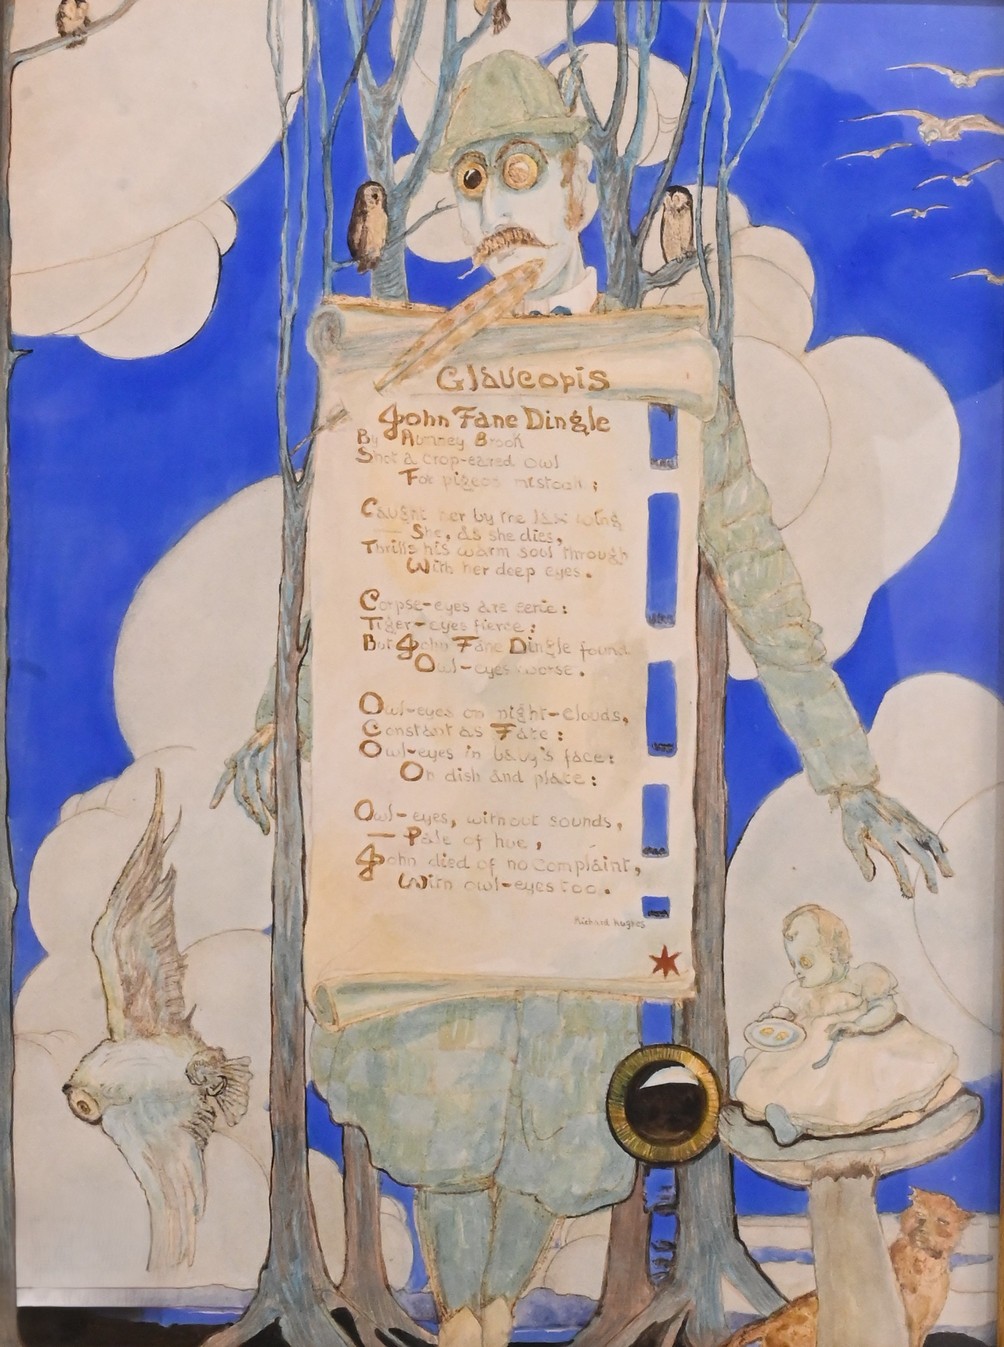 Glaucopis
John Fane Dingle
By Rumney Brook
Shot a crop-eared owl
For pigeon mistook;
Caught her by the lax wing
— She, as she dies,
Thrills his warm soul through
With her deep eyes.
Corpse-eyes are eerie:
Tiger-eyes fierce:
But John Fane Dingle found
Owl-eyes worse.
Owl-eyes on night-clouds,
Constant as Fate:
Owl-eyes in baby's face:
On dish and plate:
Owl-eyes, without sounds,
— Pale of hue,
John died of no complaint,
With owl-eyes too.
Richard Hughes